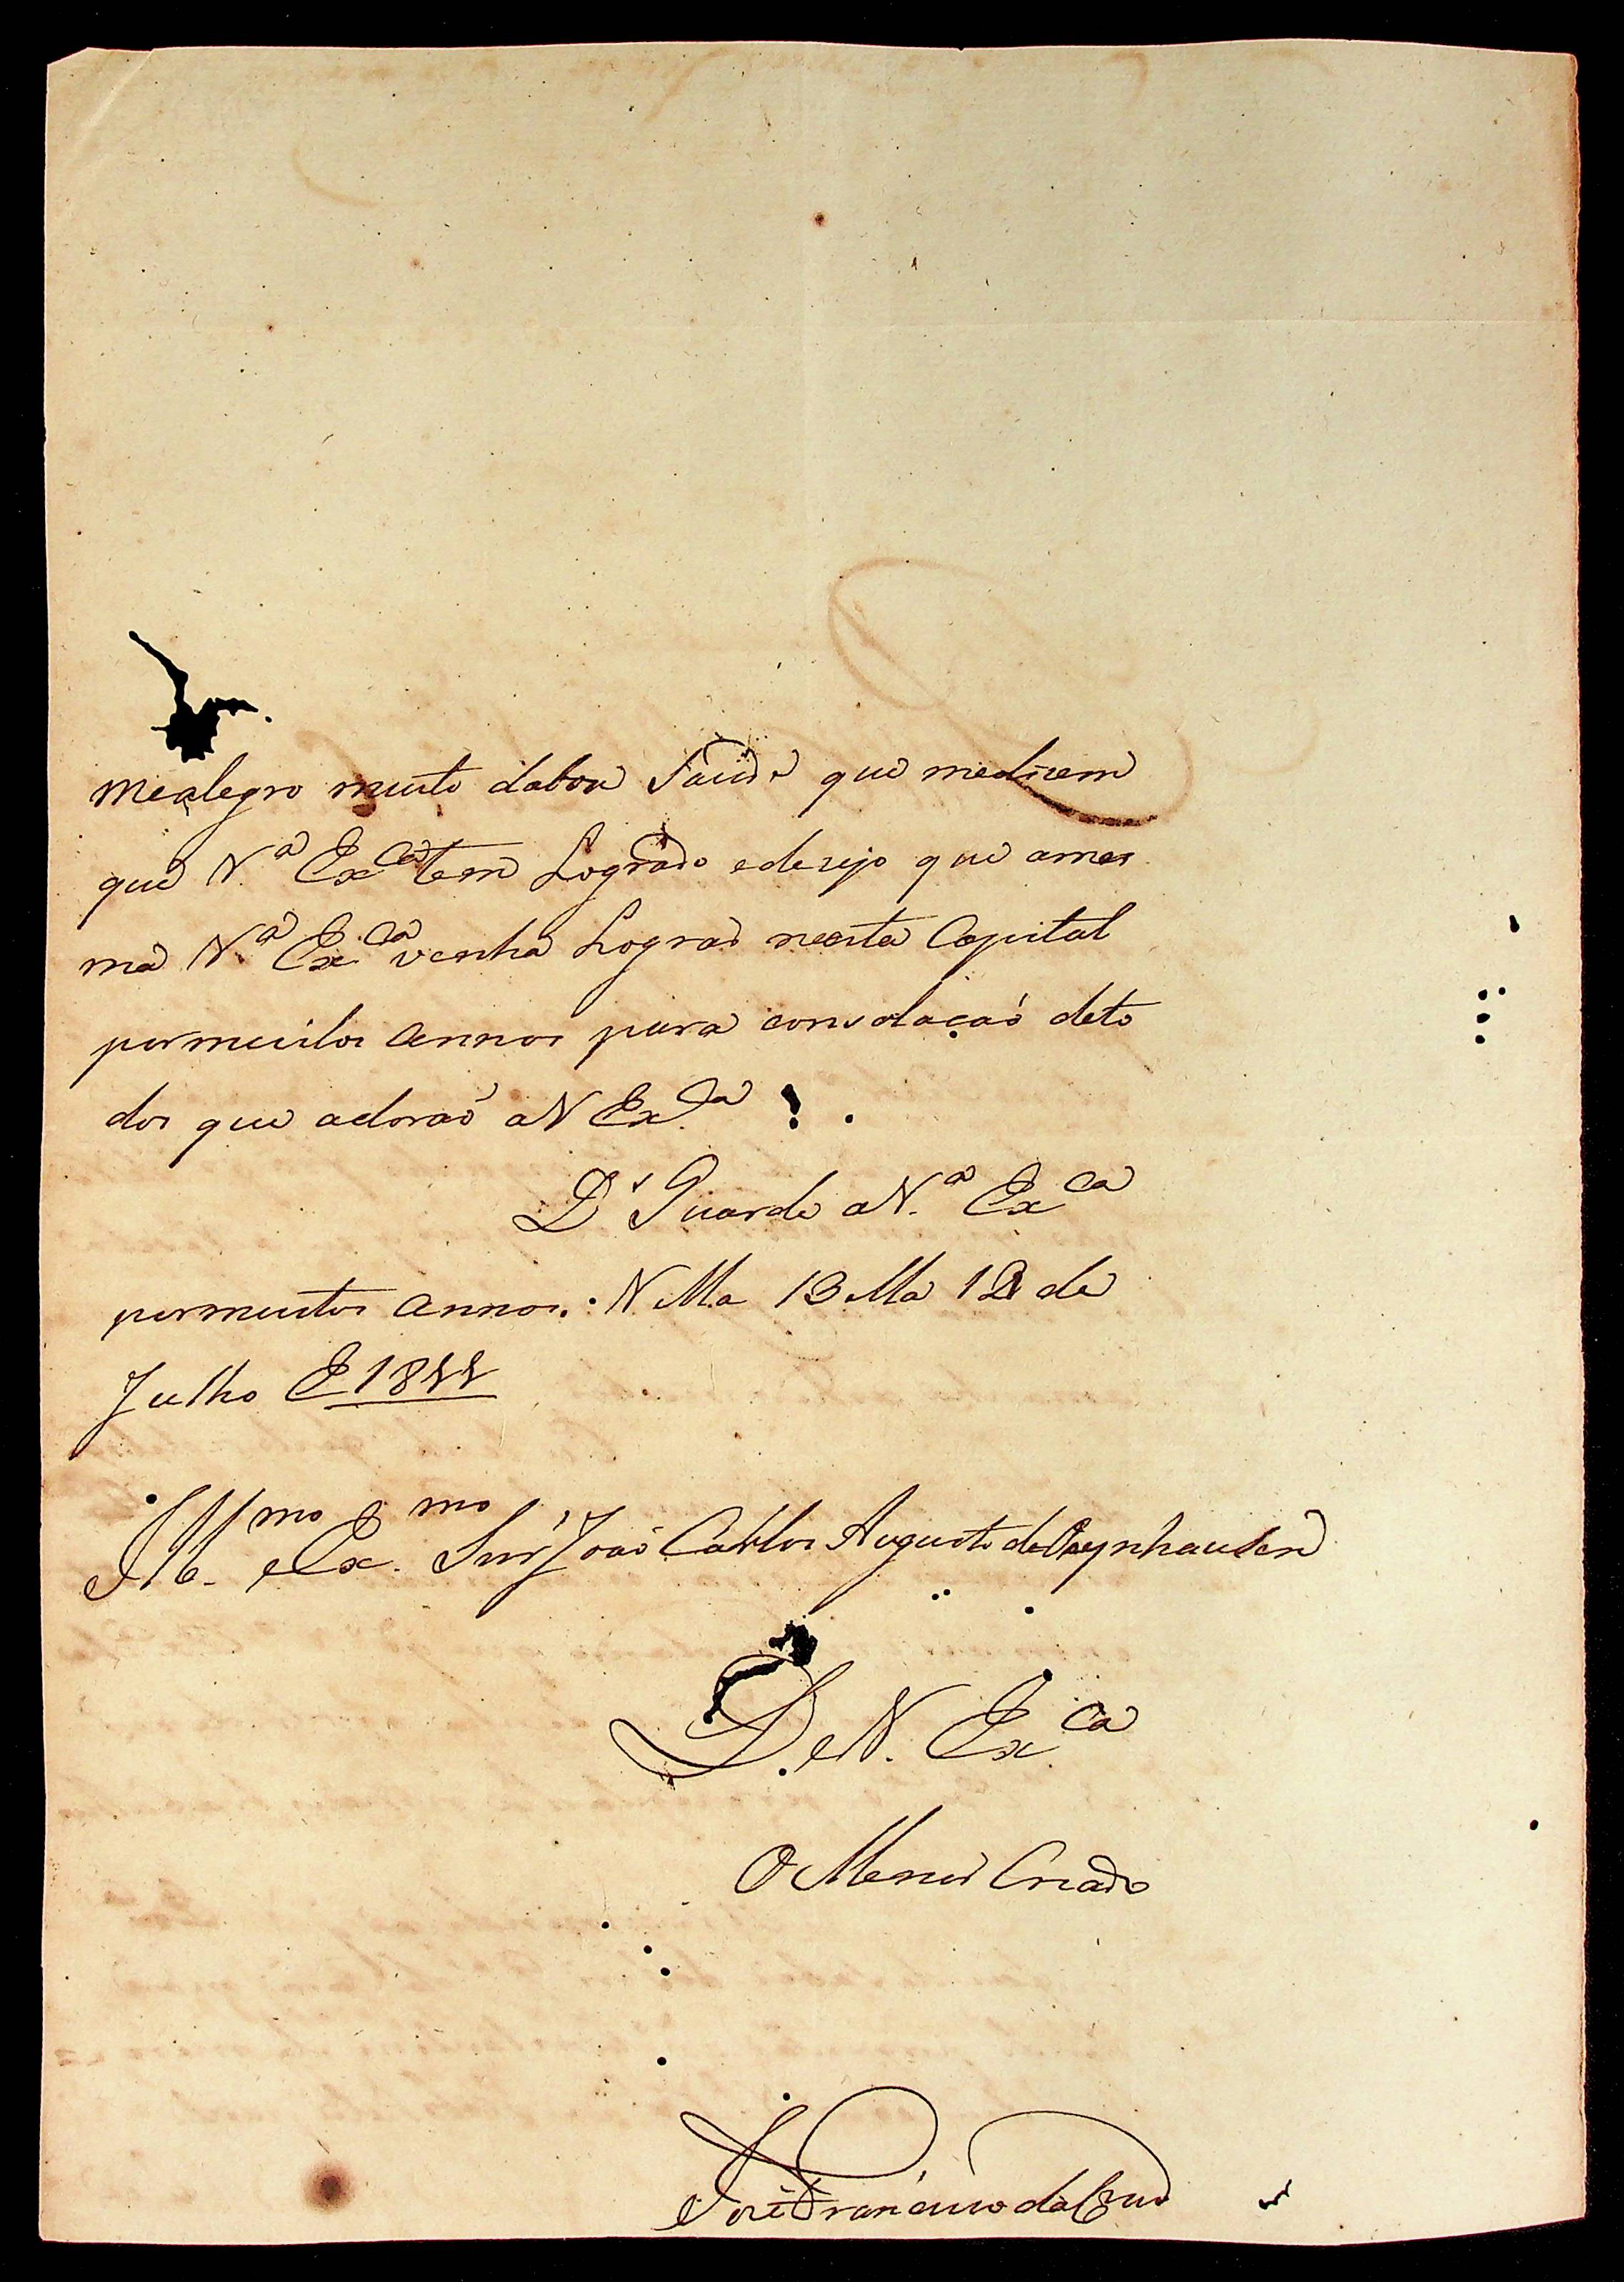 mealegro muito daboa Saude que medizem
que V.ª Ex.ca tem Logrado edezejo que ames
ma V.ª Ex.ca venha Lograr nesta Capital
pormuitos annos para consolaçaõ deto
dos que adoraõ aV Ex.ca
D.s Guarde aV.ª Ex.ca
pormuitos annos. V.ª 13 de
Julho E 1811
Ill.mo e Ex.mo Snr' Joaõ Carlos Augusto deOeynhausen
De V. Ex.ca
O Menor Criado
Joze Francisco da Cruz